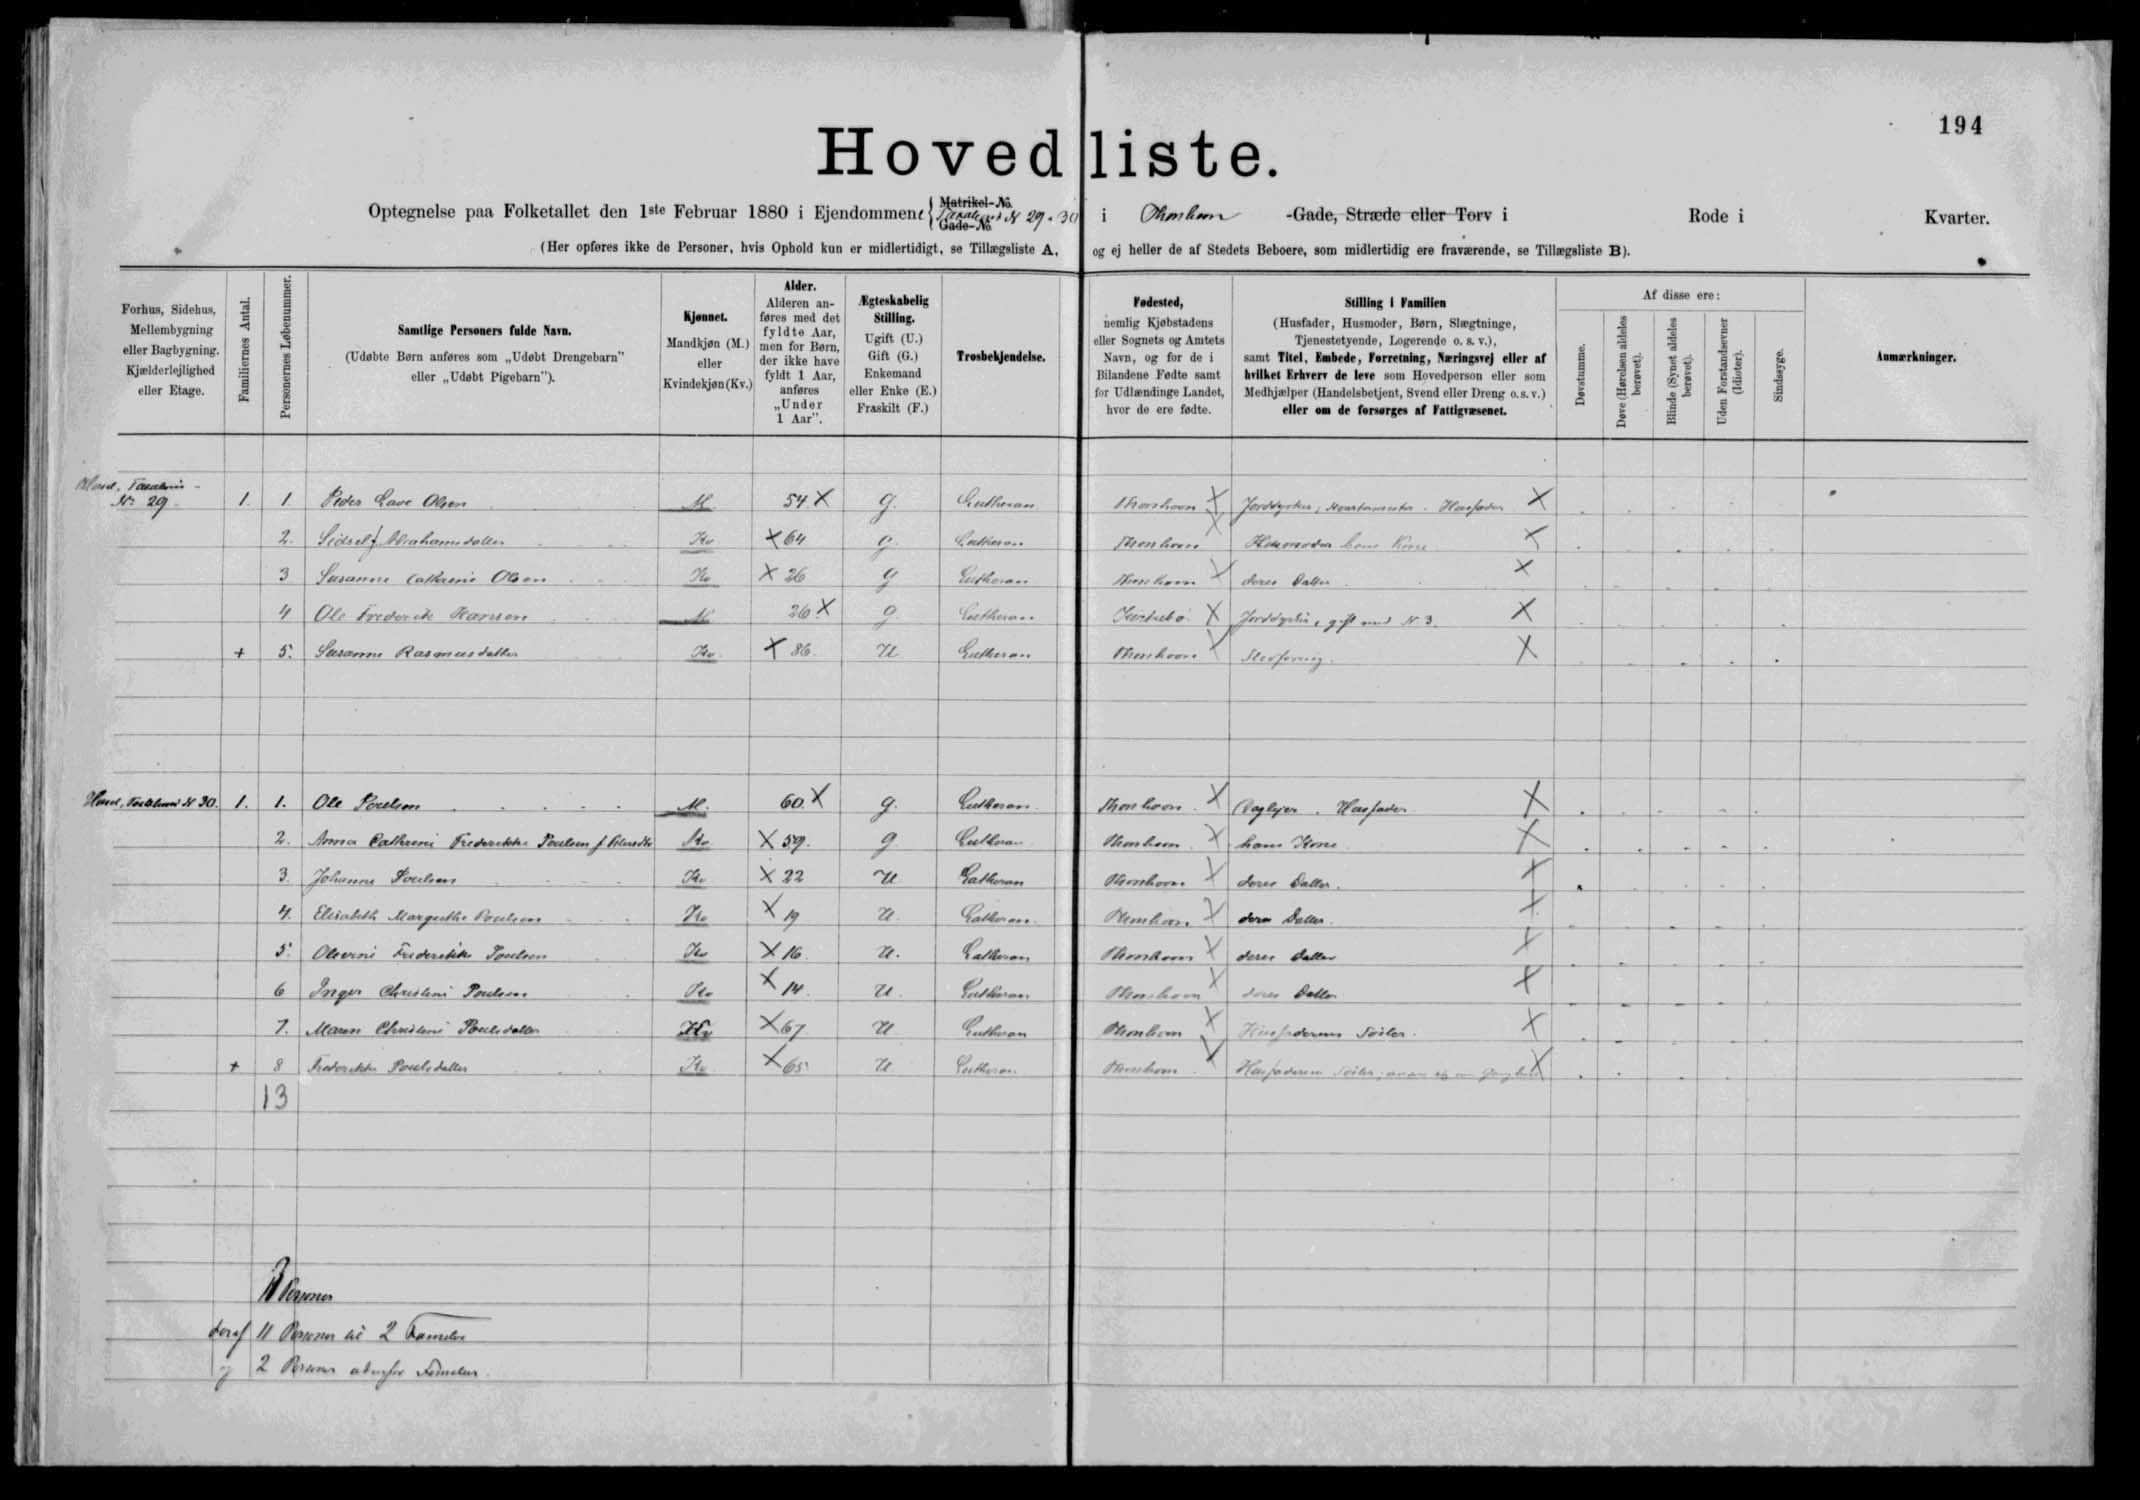 194
Hovedliste.
Optegnelse paa Folketallet den 1ste Februar 1880 i Ejendommene Matrikel-No. Gade-No. 29 & 30 i Thorshavn -Gade, Stræde eller Torv i Rode i Kvarter.
(Her opføres ikke de Personer, hvis Ophold kun er midlertidigt, se Tillægsliste A, og ej heller de af Stedets Beboere, som midlertidig ere fraværende, se Tillægsliste B).
Forhus, Sidehus, Mellembygning eller Bagbygning. Kjælderlejlighed eller Etage.
Familiernes Antal.
Personernes Løbenummer.
Samtlige Personers fulde Navn. (Udøbte Børn anføres som „Udøbt Drengebarn” eller „Udøbt Pigebarn”).
Kjønnet. Mandkjøn (M.) eller Kvindekjøn (Kv.)
Alder. Alderen anføres med det fyldte Aar, men for Børn, der ikke have fyldt 1 Aar, anføres „Under 1 Aar”.
Ægteskabelig Stilling. Ugift (U.) Gift (G.) Enkemand eller Enke (E.) Fraskilt (F.)
Trosbekjendelse.
Fødested, nemlig Kjøbstadens eller Sognets og Amtets Navn, og for de i Bilandene Fødte samt for Udlændinge Landet, hvor de ere fødte.
Stilling i Familien (Husfader, Husmoder, Børn, Slægtninge, Tjenestetyende, Logerende o. s. v.), samt Titel, Embede, Forretning, Næringsvej eller af hvilket Erhverv de leve som Hovedperson eller som Medhjælper (Handelsbetjent, Svend eller Dreng o. s. v.) eller om de forsørges af Fattigvæsenet.
Af disse ere:
Døvstumme.
Døve (Hørelsen aldeles berøvet).
Blinde (Synet aldeles berøvet).
Uden Forstandsevner (Idioter).
Sindssyge.
Anmærkninger.
No 29 1. 1. Peder Lave Olsen M. 54 X g. Lutheran Thorshavn X Jorddyrker, Husfader X
2. Sidsel Abrahamsdatter Kv X 64 g. Lutheran Thorshavn X Husmoder hans Kone X
3 Susanne Cathrine Olsen Kv X 26 g Lutheran Thorshavn X deres Datter X
4 Ole Frederik Hansen M 26 X g. Lutheran X Jorddyrker, gift med N. 3. X
+ 5. Susanne Rasmusdatter Kv. X 86. U Lutheran Thorshavn X X
N 30. 1. 1. Ole Poulsen M. 60 X g. Lutheran Thorshavn X Daglejer. Husfader X
2. Anna Cathrine Frederikke Poulsen f. Kv. X 59. g. Lutheran Thorshavn X hans Kone X
3. Johanne Poulsen Kv X 22 U Lutheran Thorshavn X deres Datter. X
4. Elisabeth Margrethe Poulsen Kv X 19 U. Lutheran. Thorshavn X deres Datter. X
5. Olevine Frederikke Poulsen Kv X 16. U. Lutheran Thorshavn X deres Datter X
6 Inger Christine Poulsen Kv X 14. U. Lutheran Thorshavn X deres Datter X
7. Maren Christine Poulsdatter Kv X 67 U Lutheran Thorshavn X Husfaderens Søster. X
+ 8 Frederikke Poulsdatter Kv. X 65. U. Lutheran Thorshavn X Husfaderens Søster, X
13
13 Personer
deraf 11 Personer til 2 Familier
og 2 Personer udenfor Familier.